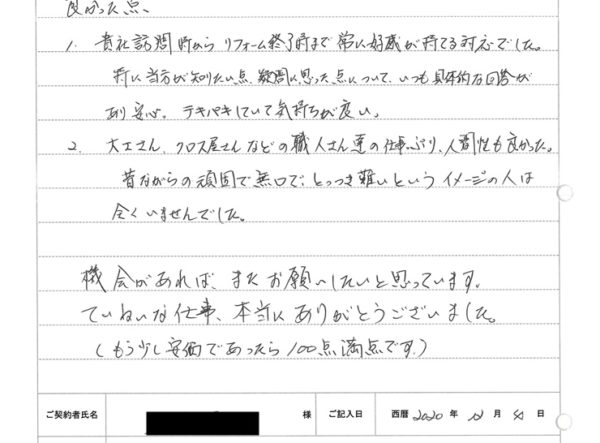 良かった点、
1. 貴社訪問時から リフォーム終了時まで 常に好感が持てる対応でした。
特に当方が知りたい点、疑問に思った点について、いつも具体的な回答が
あり安心。テキパキしていて気持ちが良い。
2. 大工さん、クロス屋さんなどの職人さん達の仕事ぶり、人間性も良かった。
昔ながらの頑固で無口で、とっつき難いという イメージの人は
全くいませんでした。
機会があれば、また お願いしたいと思っています。
ていねいな仕事、本当に ありがとうございました。
(もう少し安価であったら 100点満点です。)
ご契約者氏名 様 ご記入日 西暦 2020 年 月 日